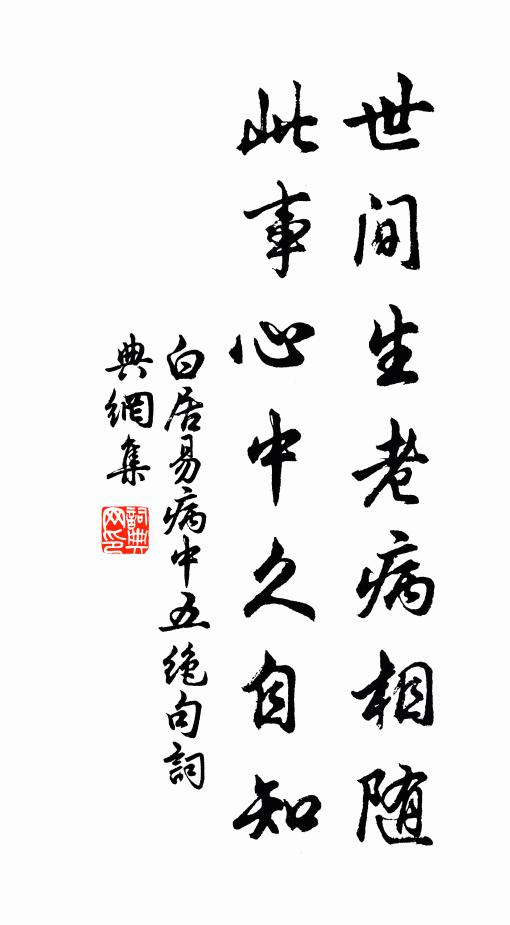 世间生老病相随
此事心中久自知
白居易病中五绝句詞
典網集
詞典
网印